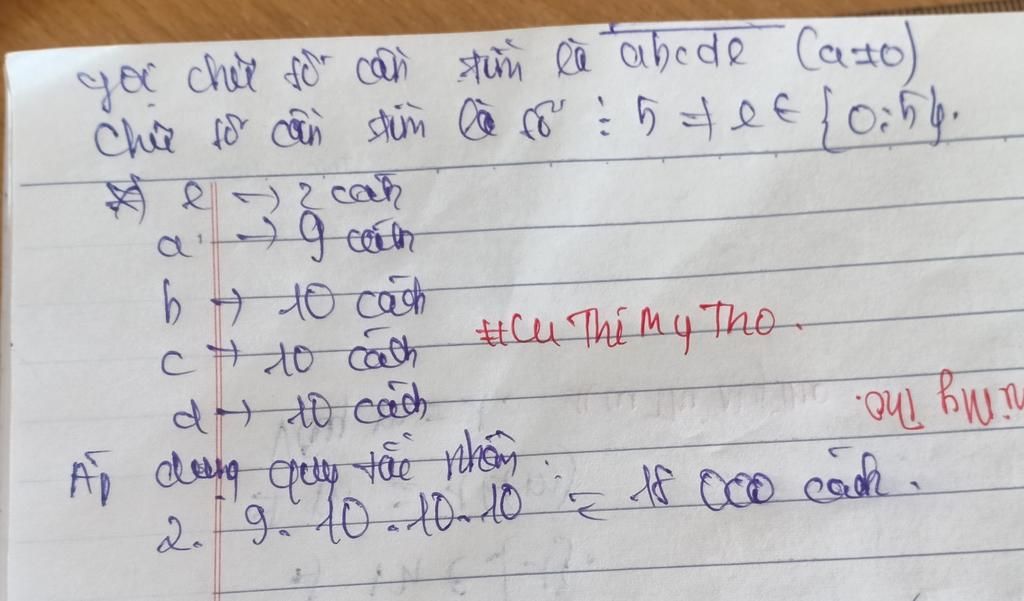 Gọi chữ số cần tìm là abcde (a≠0)
Chữ số cần tìm là số ⋮ 5 ⇒ e ∈ {0;5}.
*) e → 2 cách
a → 9 cách
b → 10 cách
c → 10 cách
#Cu Thi My Tho.
d → 10 cách
hi My Tho.
Áp dụng quy tắc nhân:
2. 9. 10.10.10 = 18 000 cách.